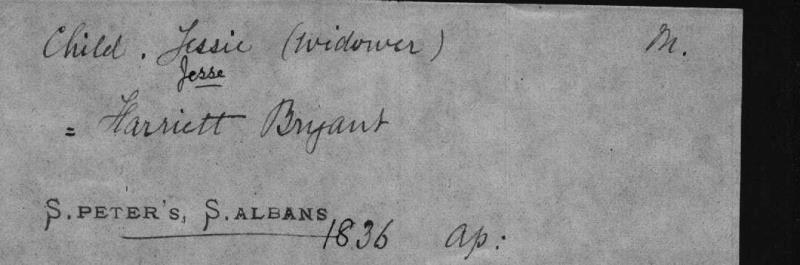 Child. Jessie (Widower) M.
Jesse
= Harriett Bryant
S. PETER'S, S. ALBANS 1836 Ap: